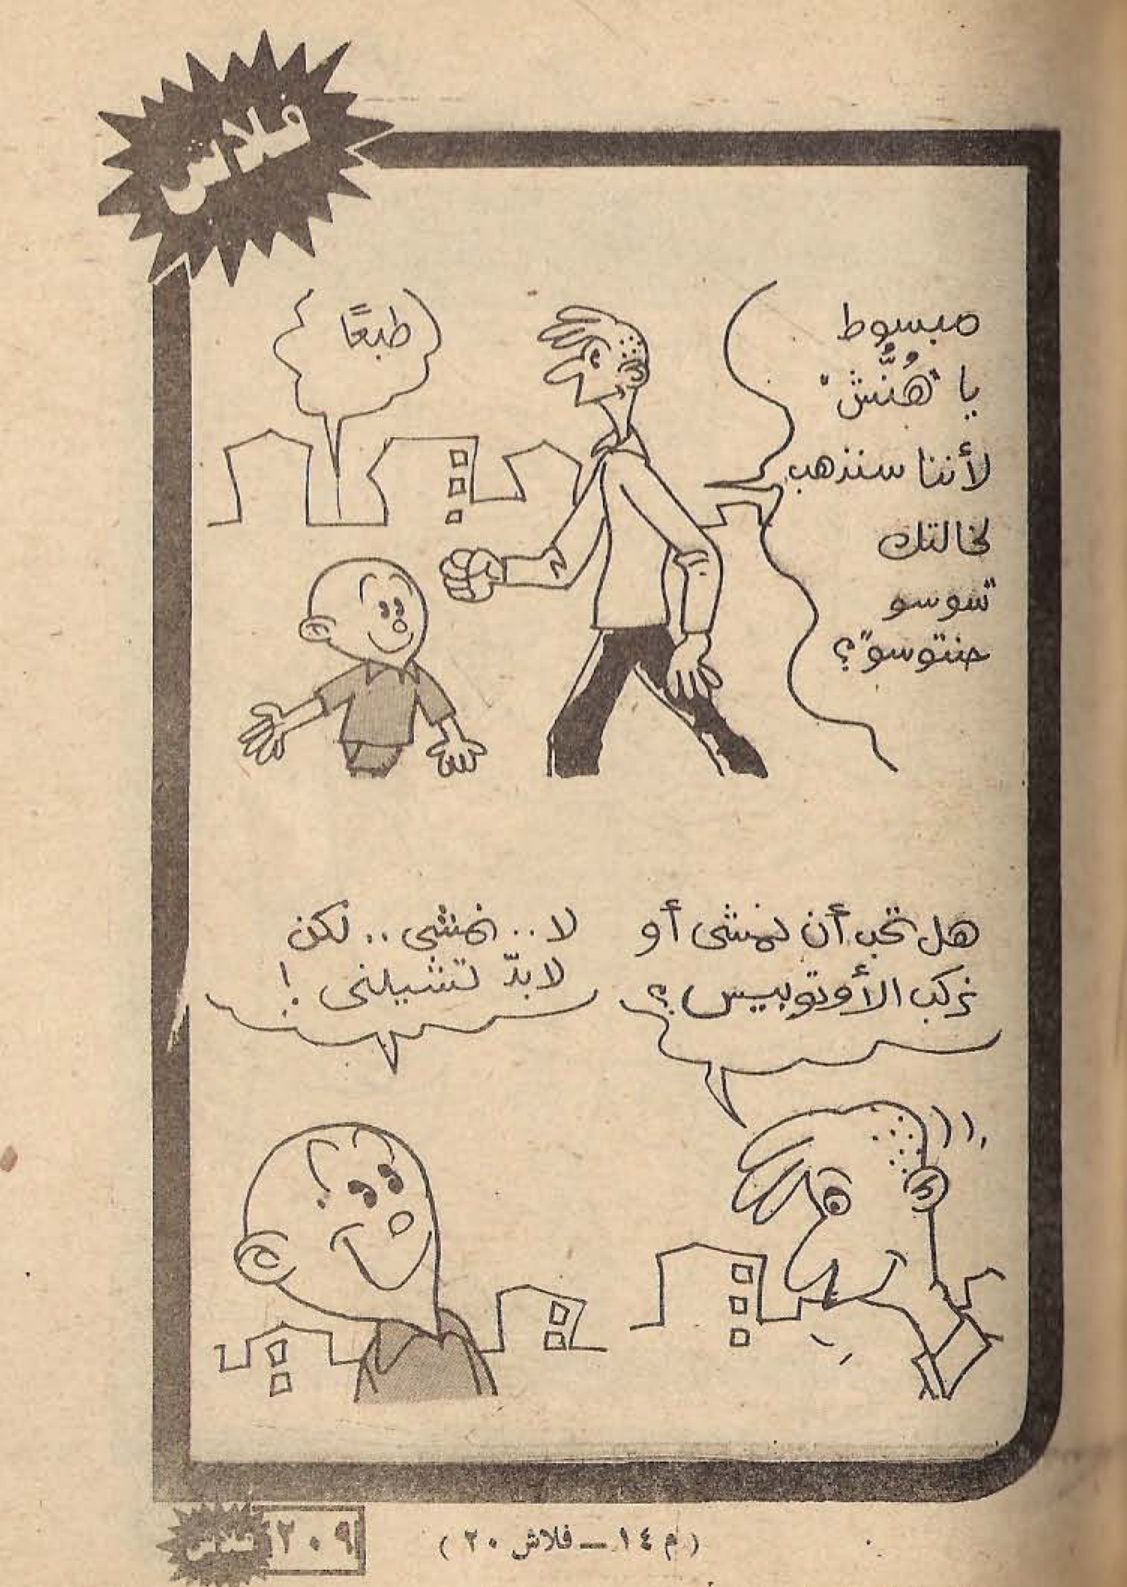 فلاش
مبسوط
يا "هُنَّش"
لأننا سنذهب
لخالتك
"سوسو
حنتوسو"؟
طبعًا
هل تحب أن نمشى أو
نركب الأوتوبيس؟
لا.. نمشى.. لكن
لابدّ تشيلنى!
(م ١٤ — فلاش ٢٠)
٢٠٩
فلاش